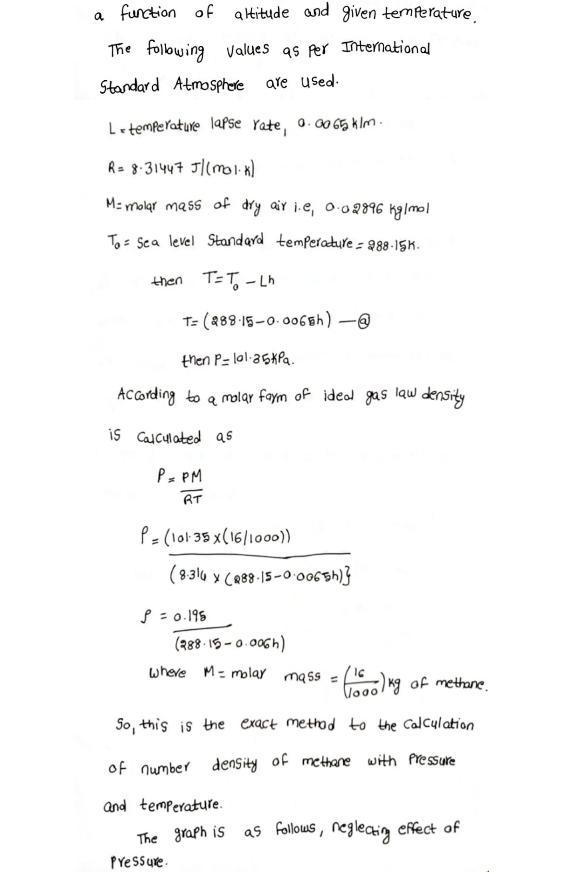 a function of altitude and given temperature.
The following values as per International
Standard Atmosphere are used.
L = temperature lapse rate, 0.0065 k/m.
R = 8.31447 J/(mol.k)
M = molar mass of dry air i.e, 0.02896 kg/mol
T₀ = Sea level Standard temperature = 288.15K.
then T = T₀ - Lh
T = (288.15-0.0065h) —ⓐ
then P = 101.35kPa.
According to a molar form of ideal gas law density
is calculated as
ρ = PM
RT
ρ = (101.35 x (16/1000))
(8.314 x (288.15-0.0065h)}
ρ = 0.195
(288.15-0.006h)
where M = molar mass = (16/1000) kg of methane.
So, this is the exact method to the calculation
of number density of methane with pressure
and temperature.
The graph is as follows, neglecting effect of
pressure.